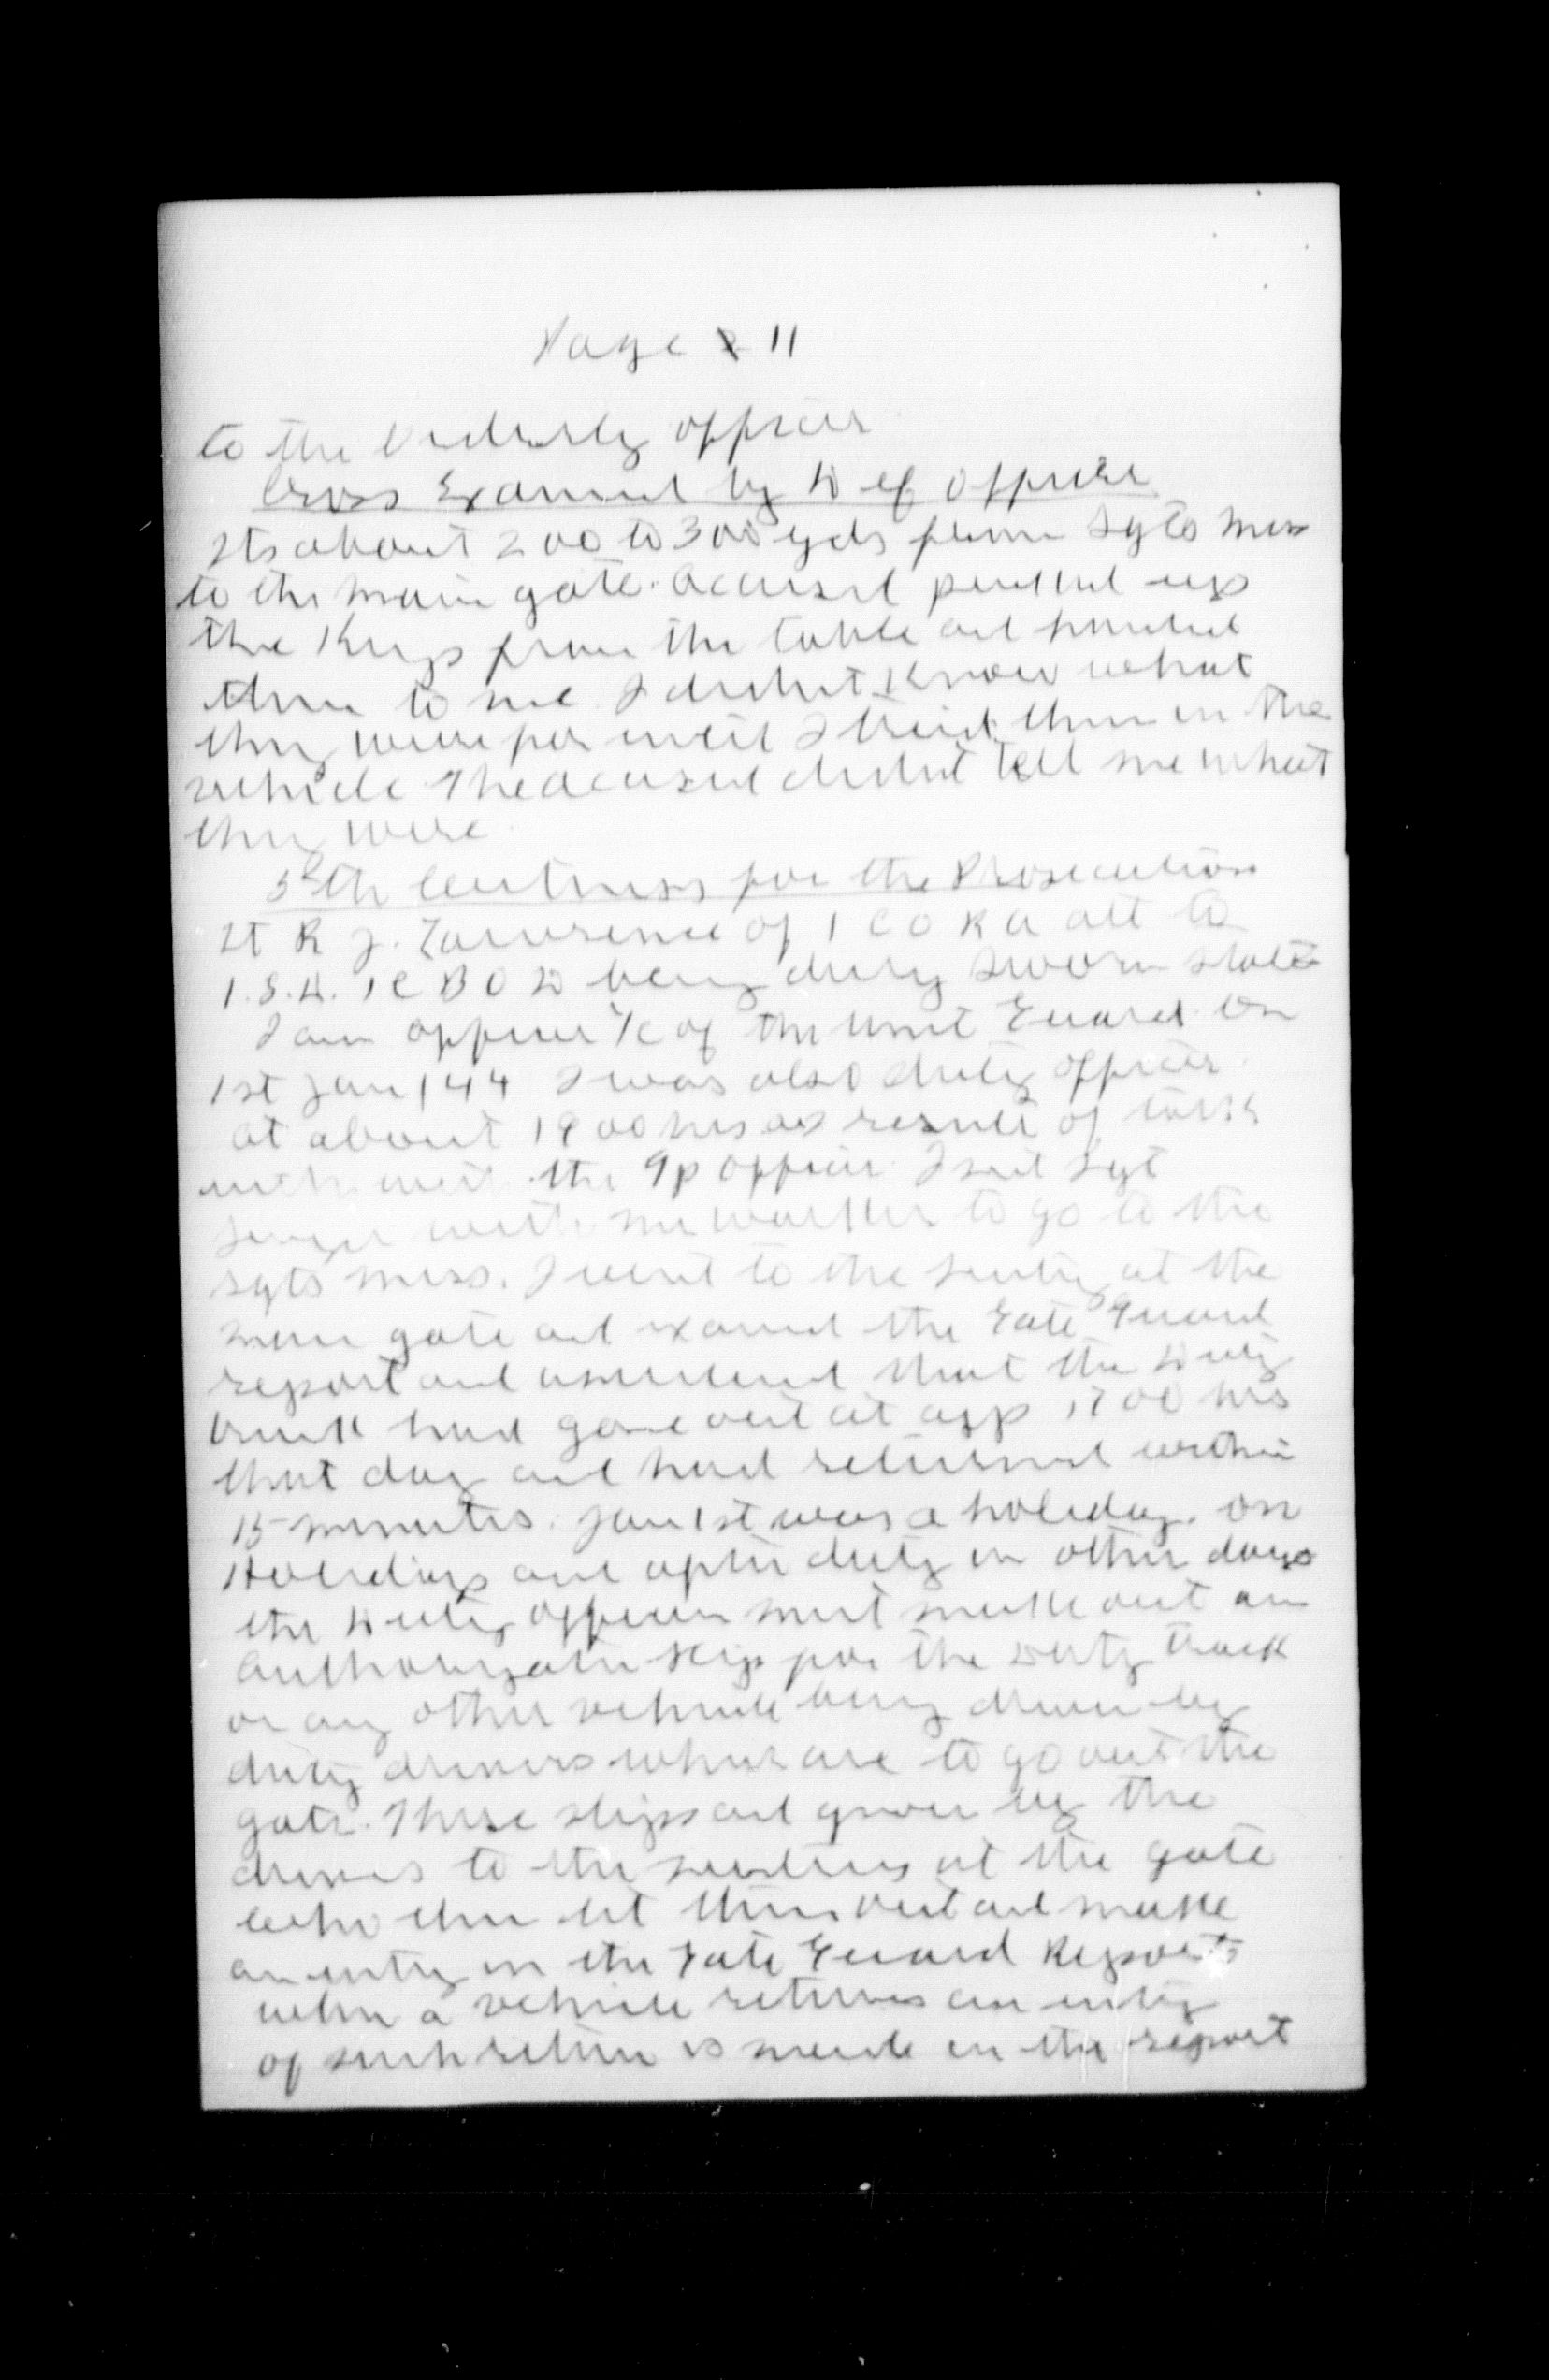 Page 11
to the Orderly officer
Cross Examined by Def Officer
Its about 200 to 300 yds from Sgts mess
to the main gate. Accused picked up
the Keys from the table and handed
them to me I didnt Know what
they were for until I tried them in the
vehicle The accused didnt tell me what
they were
5th Witness for the Prosecution
Lt R J. Lawrence of 1 C O R U att to
1.S.D. 1 C B O D being duly sworn states
I am officer i/c of the unit Guard. On
1st Jan/44 I was also duty officer.
At about 1900 hrs as result of talk
with the Gp officer I sent Sgt
with me to go to the
Sgts mess. I went to the sentry at the
main gate and examined the Gate Guard
report and ascertained that the Duty
truck had gone out at app 1700 hrs
that day and had returned within
15 minutes. Jan 1st was a holiday. On
Holidays and after duty on other days
the Duty officer must make out an
Authorization slip for the Duty truck
or any other vehicle being driven by
duty drivers which are to go out the
gate. These slips are given by the
drivers to the sentries at the gate
who then let them out and make
an entry in the Gate Guard Report
when a vehicle returns an entry
of such return is made in the report